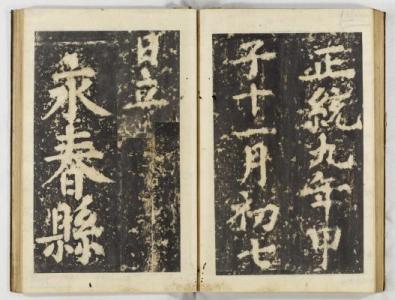 正統九年甲
子十一月初七
日立
永春縣